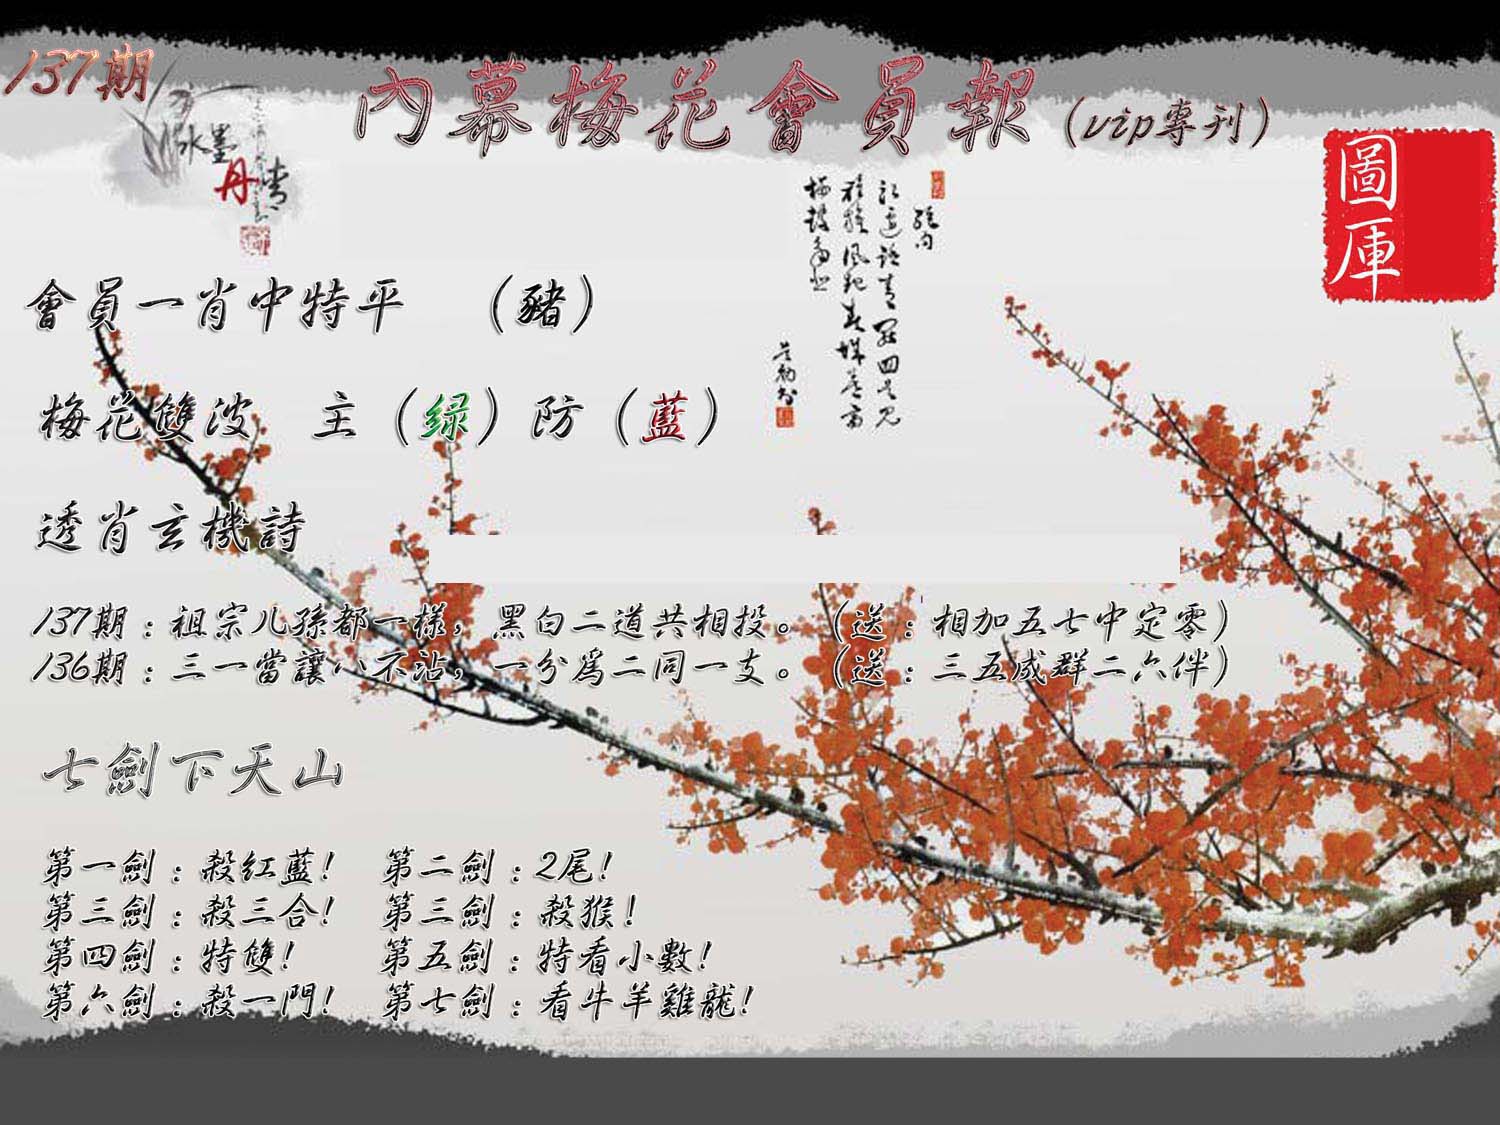 137期
內幕梅花會員報(vip專刊)
水墨
丹青
圖
庫
會員一肖中特平 （豬）
梅花雙波 主（绿）防（藍）
透肖玄機詩
137期：祖宗儿孫都一樣，黑白二道共相投。（送：相加五七中定零）
136期：三一當讓八不沾，一分爲二同一支。（送：三五成群二六伴）
七劍下天山
第一劍：殺紅藍! 第二劍：2尾!
第三劍：殺三合! 第三劍：殺猴!
第四劍：特雙! 第五劍：特看小數!
第六劍：殺一門! 第七劍：看牛羊雞龍!